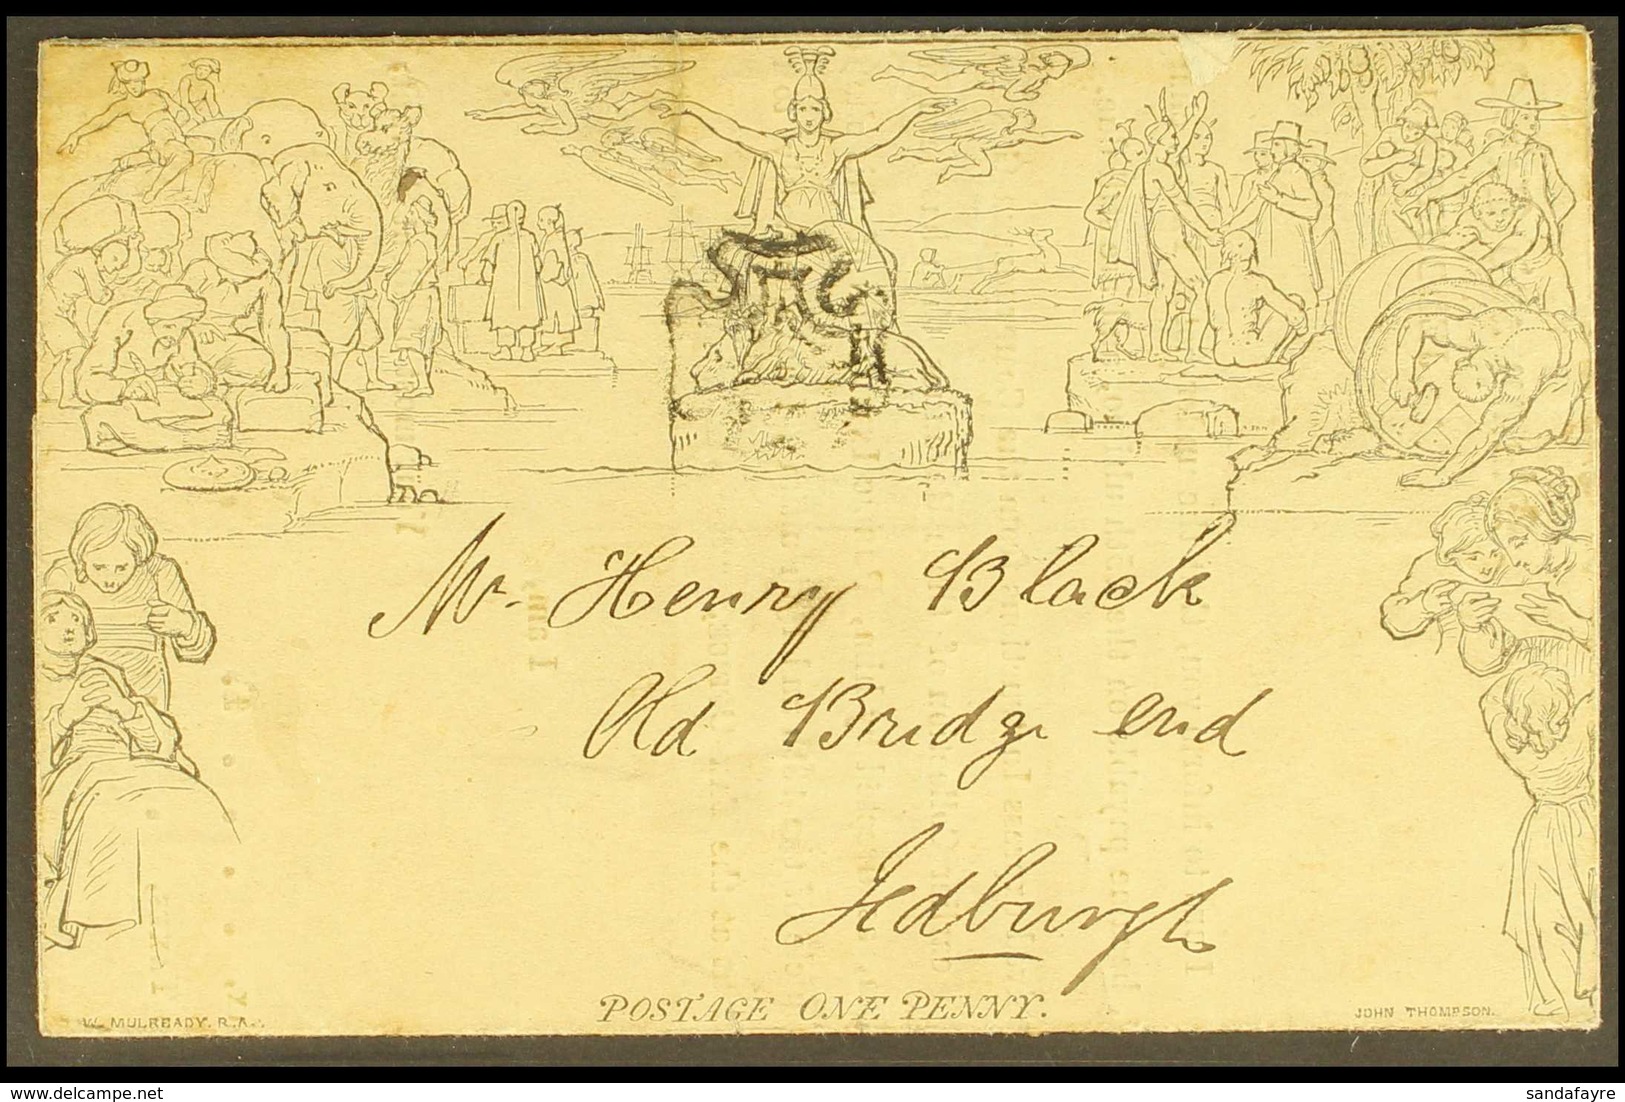 Mr. Henry Black
Old Bridge end
Jedburgh
POSTAGE ONE PENNY.
W. MULREADY. R.A.
JOHN THOMPSON.
I am
delcampe.net
sandafayre